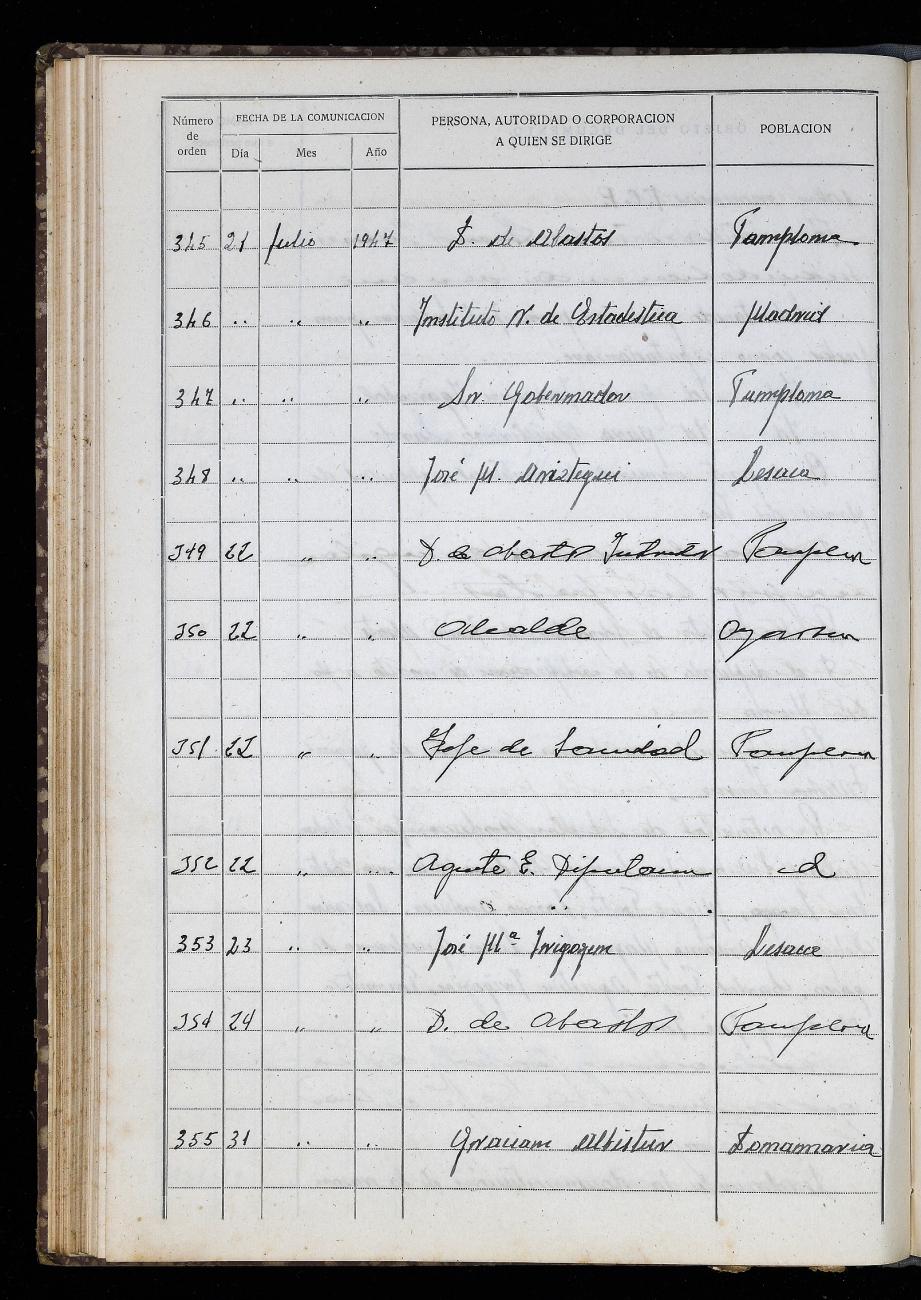 Número de orden
FECHA DE LA COMUNICACION
Día Mes Año
PERSONA, AUTORIDAD O CORPORACION
A QUIEN SE DIRIGE
POBLACION
345 21 Julio 1947 D. de Abastos Pamplona
346 .. .. .. Instituto N. de Estadistica Madrid
347 .. .. .. Sr. Gobernador Pamplona
348 .. .. .. José M. Aristegui Lesaca
349 22 " .. D. de Abastos Pamplona
350 22 " .. Alcalde Oyarzun
351 22 " .. Jefe de Sanidad Pamplona
352 22 " .. Agente E. Diputacion id
353 23 .. .. José Mª Irigoyen Lesaca
354 24 " " D. de Abastos Pamplona
355 31 .. .. Graciam Albistur Donamaria